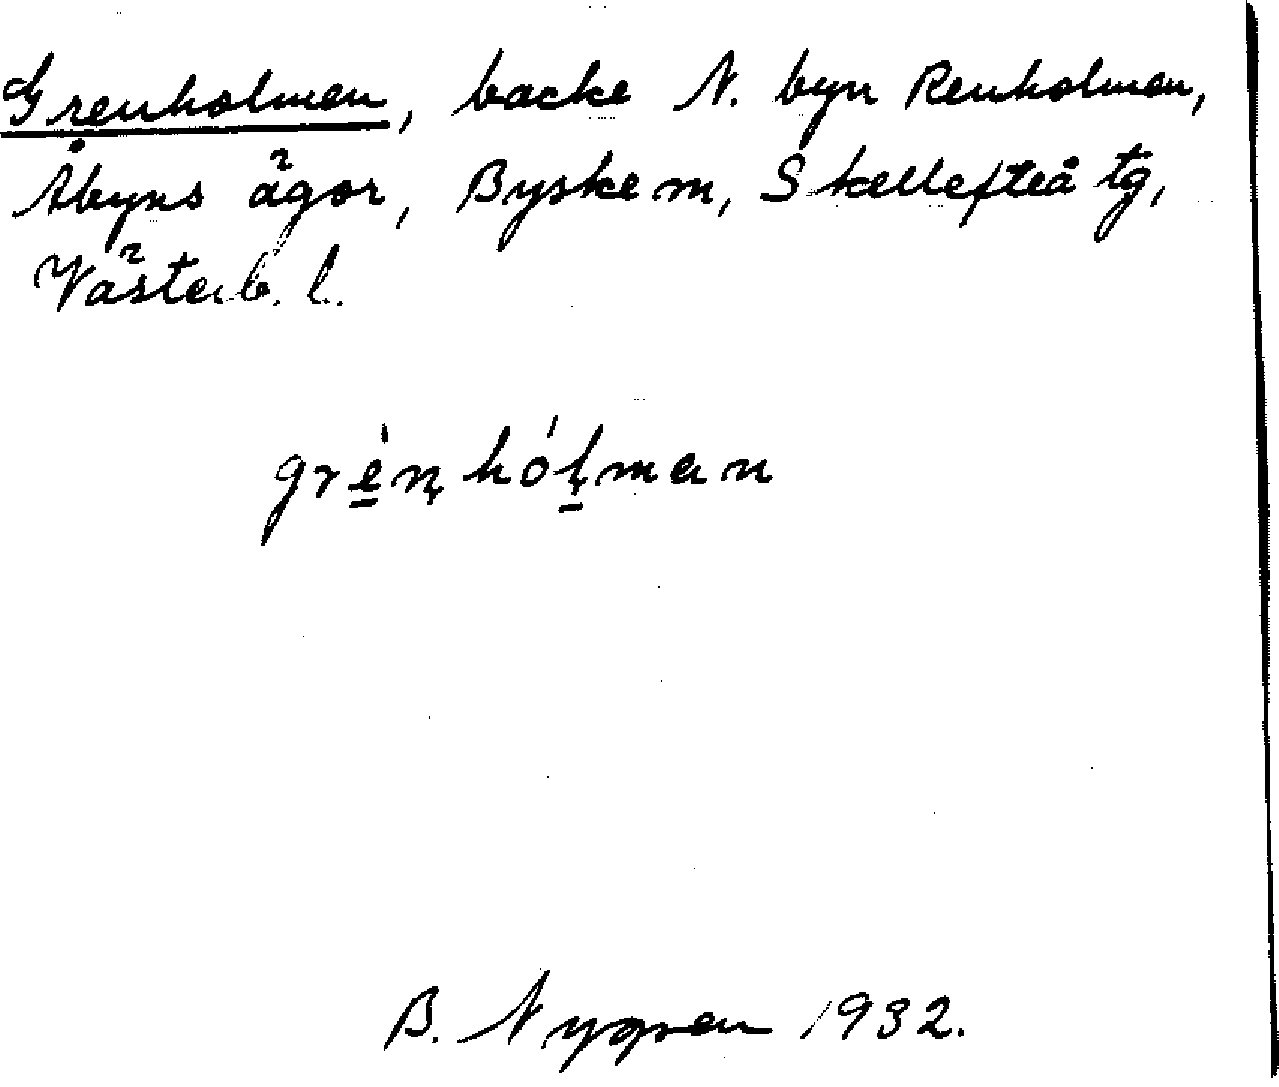 Grenholmen, backe N. byn Renholmen,
Åbyns ägor, Byske m, Skellefteå tg,
Västerb. l.
grè̲n̨hó̲l̨man
B. Nygren 1932.